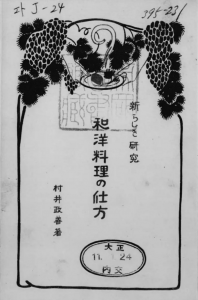 ヰJ-24
395-231
新らしき研究
和洋料理の仕方
村井政善著
大正
11. 1. 24
内交